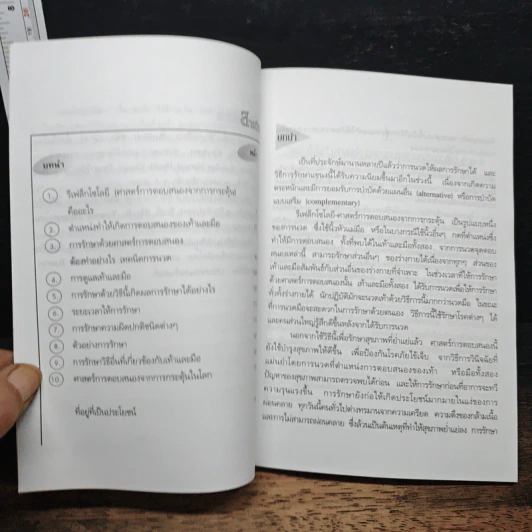 สารบัญ
บทนำ
1. รีเฟล็กโซโลยี (ศาสตร์การตอบสนองจากการกระตุ้น)
คืออะไร
2. ตำแหน่งทำให้เกิดการตอบสนองของเท้าและมือ
3. การรักษาด้วยศาสตร์การตอบสนอง
ต้องทำอย่างไร เทคนิคการนวด
4. การดูแลเท้าและมือ
5. การรักษาด้วยวิธีนี้เกิดผลการรักษาได้อย่างไร
6. ระยะเวลาให้การรักษา
7. การรักษาความผิดปกติชนิดต่างๆ
8. ตัวอย่างการรักษา
9. การรักษาวิธีอื่นที่เกี่ยวข้องกับเท้าและมือ
10. ศาสตร์การตอบสนองจากการกระตุ้นในโลก
ที่อยู่ที่เป็นประโยชน์
บทนำ
เป็นที่ประจักษ์มานานหลายปีแล้วว่าการนวดให้ผลการรักษาได้ และ
วิธีการรักษาแขนงนี้ได้รับความนิยมขึ้นมาอีกในช่วงนี้ เนื่องจากเกิดความ
ตระหนักและมีการยอมรับการบำบัดด้วยแผนอื่น (alternative) หรือการบำบัด
แบบเสริม (complementary)
รีเฟล็กโซโลยี-ศาสตร์การตอบสนองจากการกระตุ้น เป็นรูปแบบหนึ่ง
ของการนวด ซึ่งใช้นิ้วหัวแม่มือ หรือในบางกรณีใช้นิ้วอื่นๆ กดที่ตำแหน่งซึ่ง
ทำให้มีการตอบสนอง ทั้งที่พบได้ในเท้าและมือทั้งสอง จากการนวดจุดตอบ
สนองเหล่านี้ สามารถรักษาส่วนอื่นๆ ของร่างกายได้เนื่องจากทุกๆ ส่วนของ
เท้าและมือสัมพันธ์กับส่วนอื่นของร่างกายที่จำเพาะ ในช่วงเวลาที่ให้การรักษา
ด้วยศาสตร์การตอบสนองนั้น เท้าและมือทั้งสอง ได้รับการนวดเพื่อให้การรักษา
ทั่วทั้งร่างกายได้ นักปฏิบัติมักจะนวดเท้าด้วยวิธีการนี้มากกว่านวดมือ ในขณะ
ที่การนวดมือจะสะดวกในการรักษาด้วยตนเอง วิธีการนี้ใช้รักษาโรคต่างๆ ได้
และคนส่วนใหญ่รู้สึกดีขึ้นหลังจากได้รับการนวด
นอกจากใช้วิธีนี้เพื่อรักษาสุขภาพที่ย่ำแย่แล้ว ศาสตร์การตอบสนองนี้
ยังใช้บำรุงสุขภาพให้ดีขึ้น เพื่อป้องกันโรคภัยไข้เจ็บ จากวิธีการวินิจฉัยที่
แม่นยำโดยการนวดที่ตำแหน่งการตอบสนองของเท้า หรือมือทั้งสอง
ปัญหาของสุขภาพสามารถตรวจพบได้ก่อน และให้การรักษาก่อนที่อาการจะทวี
ความรุนแรงขึ้น การรักษายังก่อให้เกิดประโยชน์มากมายในแง่ของการ
ผ่อนคลาย ทุกวันนี้คนทั่วไปต่างทรมานจากความเครียด ความตึงของกล้ามเนื้อ
และการไม่สามารถผ่อนคลาย ซึ่งล้วนเป็นต้นเหตุที่ทำให้สุขภาพย่ำแย่ลง การรักษา